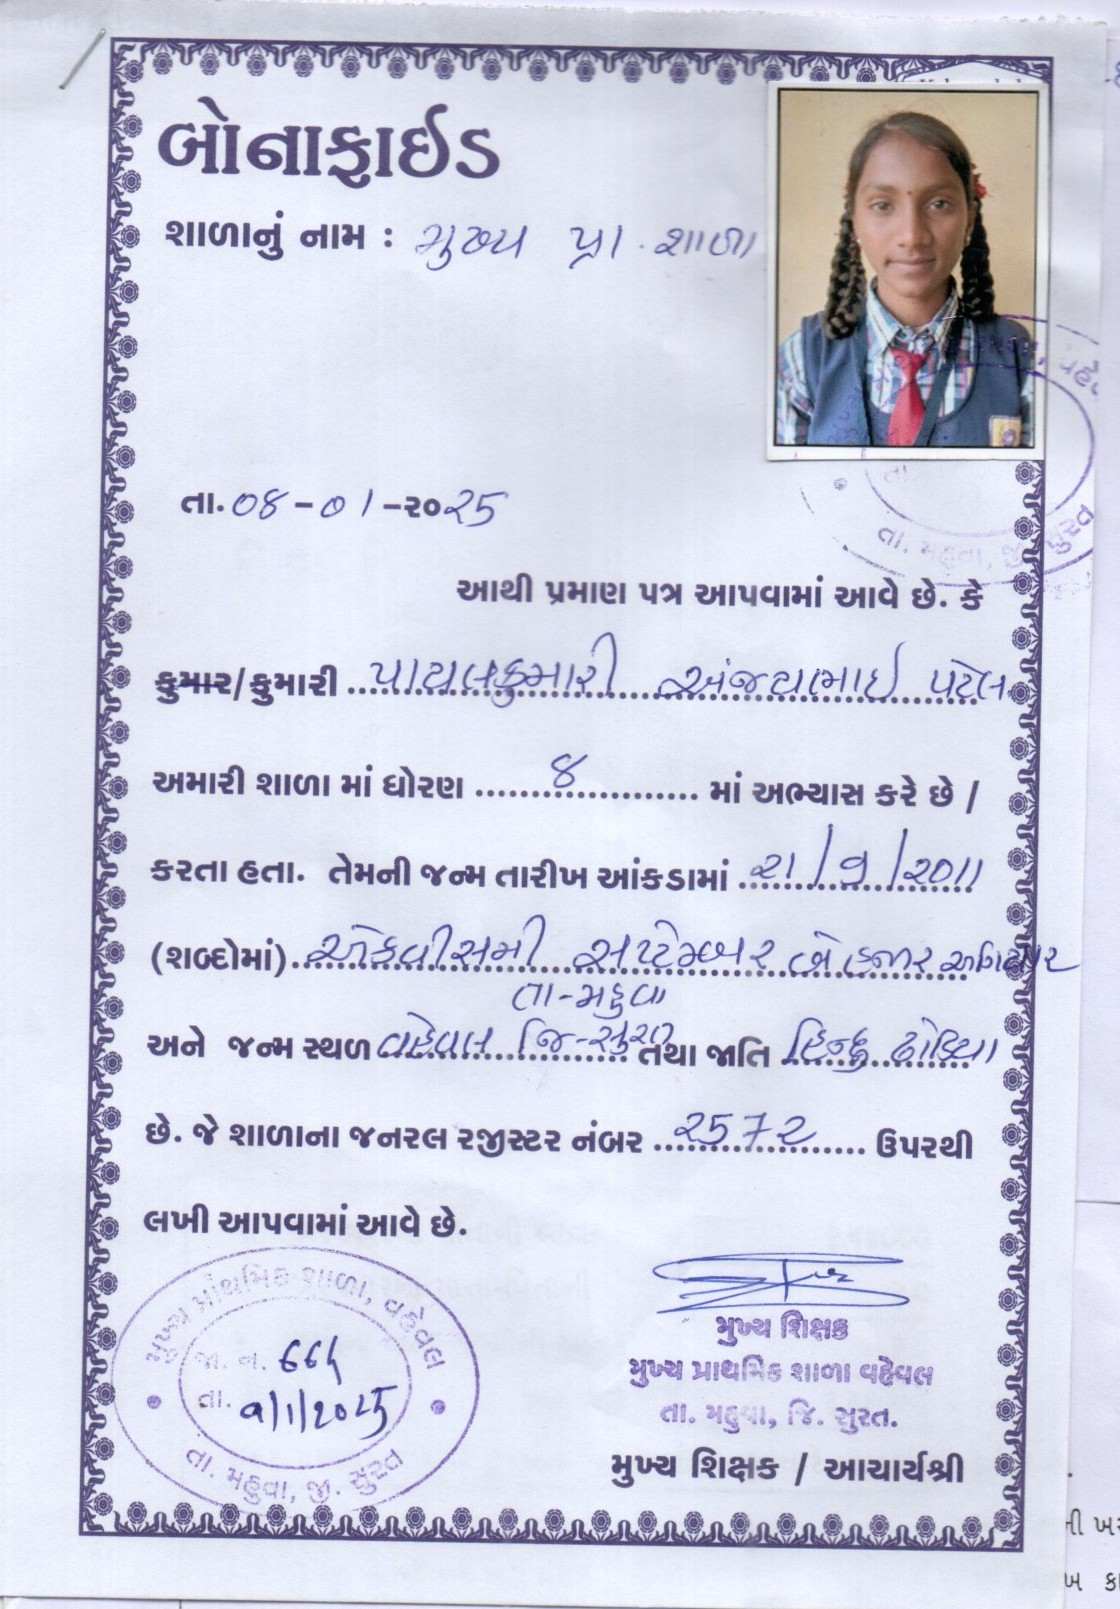 બોનાફાઈડ
શાળાનું નામ : મુખ્ય પ્રા. શાળા
તા. 08-01-૨૦25
આથી પ્રમાણ પત્ર આપવામાં આવે છે. કે
કુમાર/કુમારી પાયલકુમારી અંજયભાઇ પટેલ
અમારી શાળા માં ધોરણ ૪ માં અભ્યાસ કરે છે /
કરતા હતા. તેમની જન્મ તારીખ આંકડામાં ૨૧/૯/૨૦11
(શબ્દોમાં) એકવીસમી સપ્ટેમ્બર બે હજાર અગિયાર
તા-મહુવા
અને જન્મ સ્થળ વહેવલ જિ-સુરત તથા જાતિ હિન્દુ ઢોડિયા
છે. જે શાળાના જનરલ રજીસ્ટર નંબર ૨5૭૨ ઉપરથી
લખી આપવામાં આવે છે.
મુખ્ય પ્રાથમિક શાળા, વહેવલ
જા. ન. 664
તા. ૭/1/2025
તા. મહુવા, જી. સુરત
મુખ્ય શિક્ષક
મુખ્ય પ્રાથમિક શાળા વહેવલ
તા. મહુવા, જિ. સુરત.
મુખ્ય શિક્ષક / આચાર્યશ્રી
તા. મહુવા, જી. સુરત